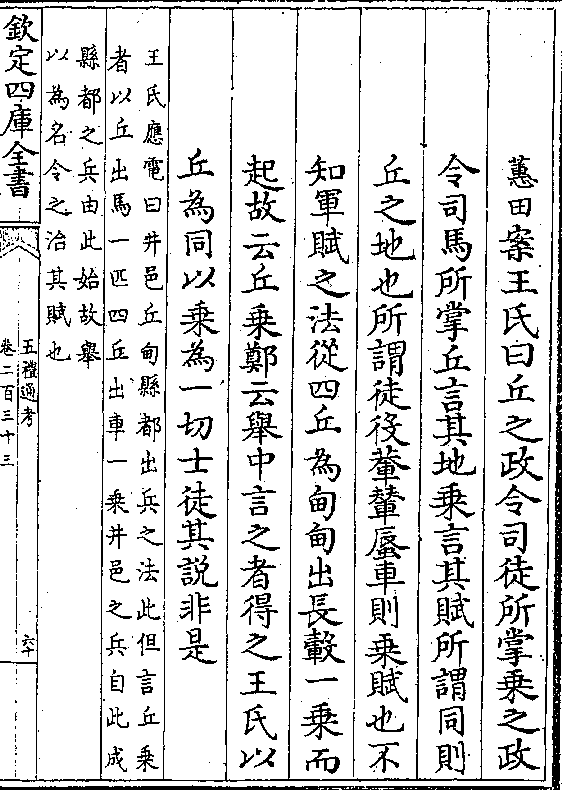 蕙田案王氏曰丘之政令司徒所掌乗之政
令司馬所掌丘言其地乗言其賦所謂同則
丘之地也所謂徒役輂輦蜃車則乗賦也不
知軍賦之法從四丘為甸甸出長轂一乗而
起故云丘乗鄭云舉中言之者得之王氏以
丘為同以乗為一切士徒其説非是
王氏應電曰井邑丘甸縣都出兵之法此但言丘乗
者以丘出馬一匹四丘出車一乗井邑之兵自此成
縣都之兵由此始故舉
以為名令之治其賦也
欽定四庫全書
五禮通考
卷二百三十三
六十